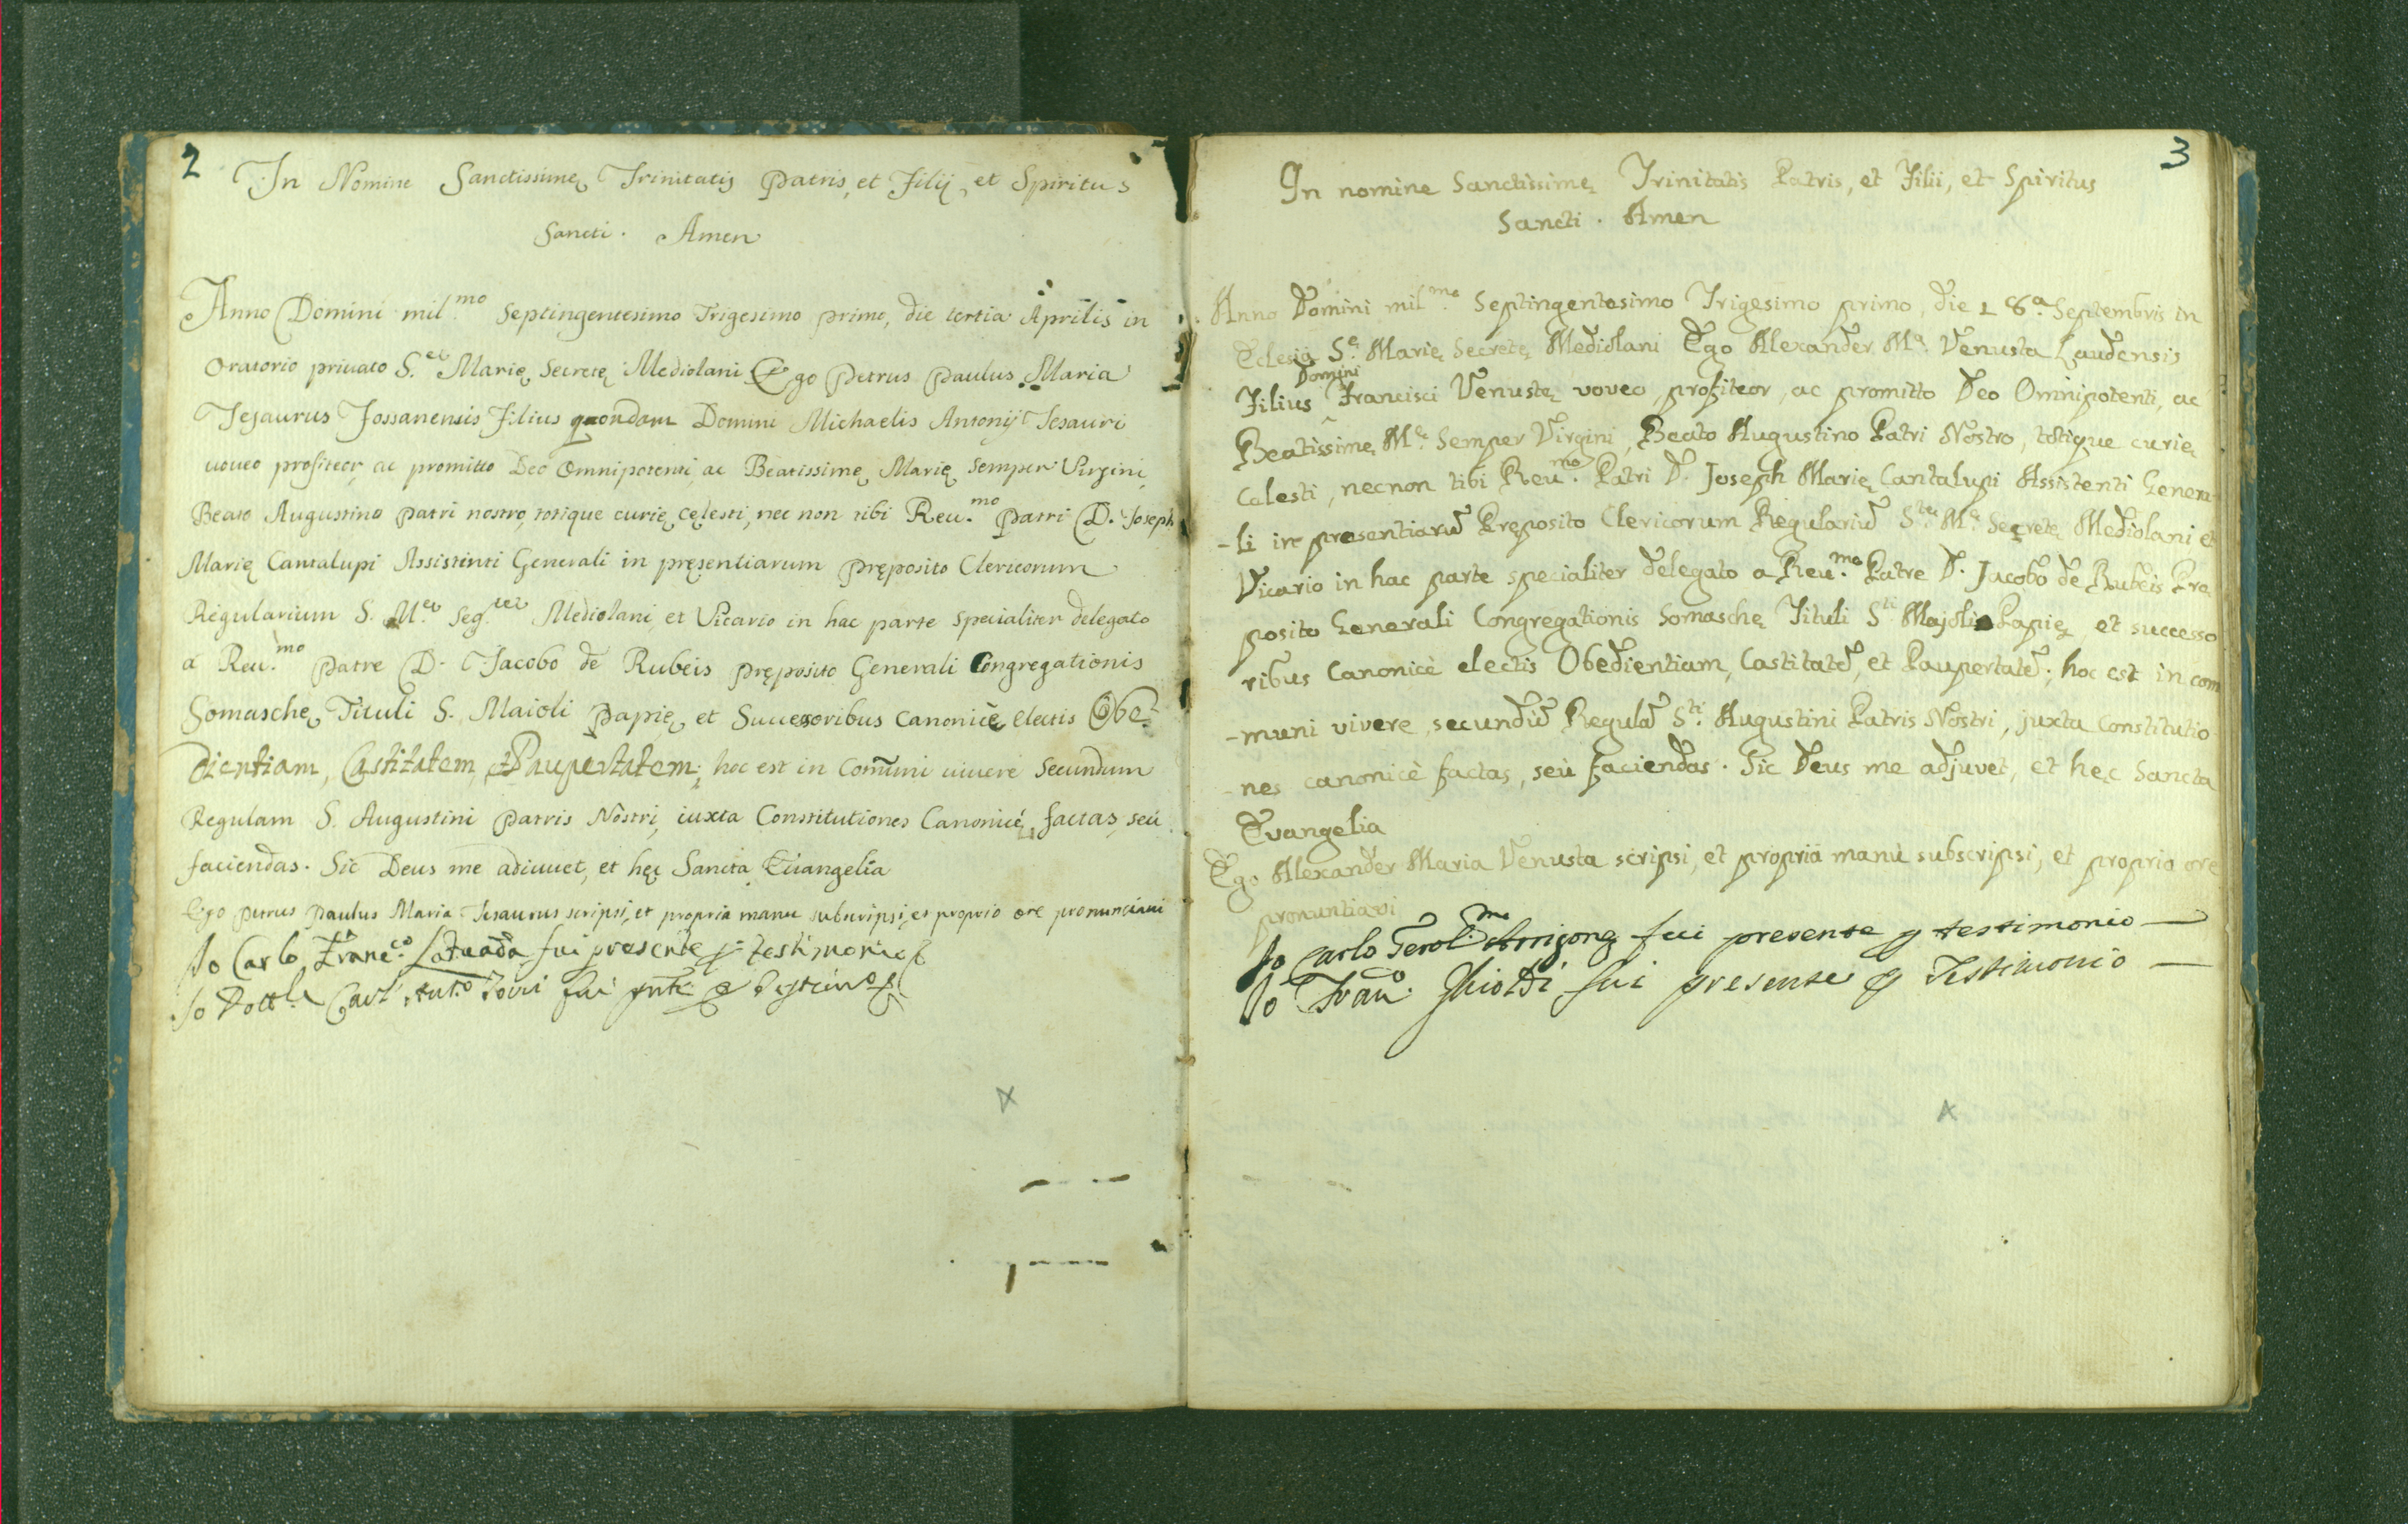 2
In Nomine Sanctissimę Trinitatis Patris, et Filij, et Spiritus
Sancti. Amen
Anno Domini mil.mo Septingentesimo Trigesimo primo, die tertia Aprilis in
Oratorio priuato S.ę Marię Secretę Mediolani Ego Petrus Paulus Maria
Tesaurus Fossanensis Filius quondam Domini Michaelis Antonij Tesauri
uoueo profiteor, ac promitto Deo Omnipotenti, ac Beatissimę Marię semper Virgini,
Beato Augustino Patri nostro, totique curię cęlesti, nec non tibi Reu.mo Patri D. Joseph
Marię Cantalupi Assistenti Generali in pręsentiarum Pręposito Clericorum
Regularium S. M.ę Seg.tę Mediolani, et Vicario in hac parte specialiter delegato
à Reu.mo Patre D. Jacobo de Rubeis Pręposito Generali Congregationis
Somaschę Tituli S. Maioli Papię, et Successoribus Canonicè electis Obe-
dientiam, Castitatem, et Paupertatem; hoc est in Com̃uni uiuere Secundum
Regulam S. Augustini Patris Nostri, iuxta Constitutiones Canonicè factas, seù
faciendas. Sic Deus me adiuuet, et hęc Sancta Euangelia
Ego Petrus Paulus Maria Tesaurus scripsi, et propria manu subscripsi, et proprio ore pronunciaui
Io Carlo Franc.co Latuada fui presente p testimonio
Io Dott. Carl Ant.o fui pnte p testim.o
3
In nomine Sanctissimę Trinitatis Patris, et Filii, et Spiritus
Sancti. Amen
Anno Domini mil.mo Septingentesimo Trigesimo primo, die 18.a Septembris in
Eclesia S.ę Marię Secretę Mediolani Ego Alexander M.a Venusta Laudensis
Domini
Filius Francisci Venustę voveo, profiteor, ac promitto Deo Omnipotenti, ac
Beatissimę M.ę Semper Virgini, Beato Augustino Patri Nostro, totique curię
Celesti, necnon tibi Reu.mo Patri D. Joseph Marię Cantalupi Assistenti Genera-
-li in presentiarũ Pręposito Clericorum Regulariũ S.tę M.ę Secretę Mediolani et
Vicario in hac parte specialiter delegato a Reu.mo Patre D. Jacobo de Rubeis Prę
posito Generali Congregationis Somaschę Tituli S.ti Majoli Papię, et successo
ribus Canonicè electis Obedientiam, Castitatẽ, et Paupertatẽ; hoc est in com
-muni vivere, secundũ Regulã S.ti Augustini Patris Nostri, juxta Constitutio
-nes canonicè factas, seù faciendas. Sic Deus me adjuvet, et hęc Sancta
Evangelia
Ego Alexander Maria Venusta scripsi, et propria manù subscripsi, et proprio ore
pronuntiavi
Io Carlo Gerol.mo Arrigone fui presente p testimonio
Io Fran.co Ghioldi fui presente p Testimonio